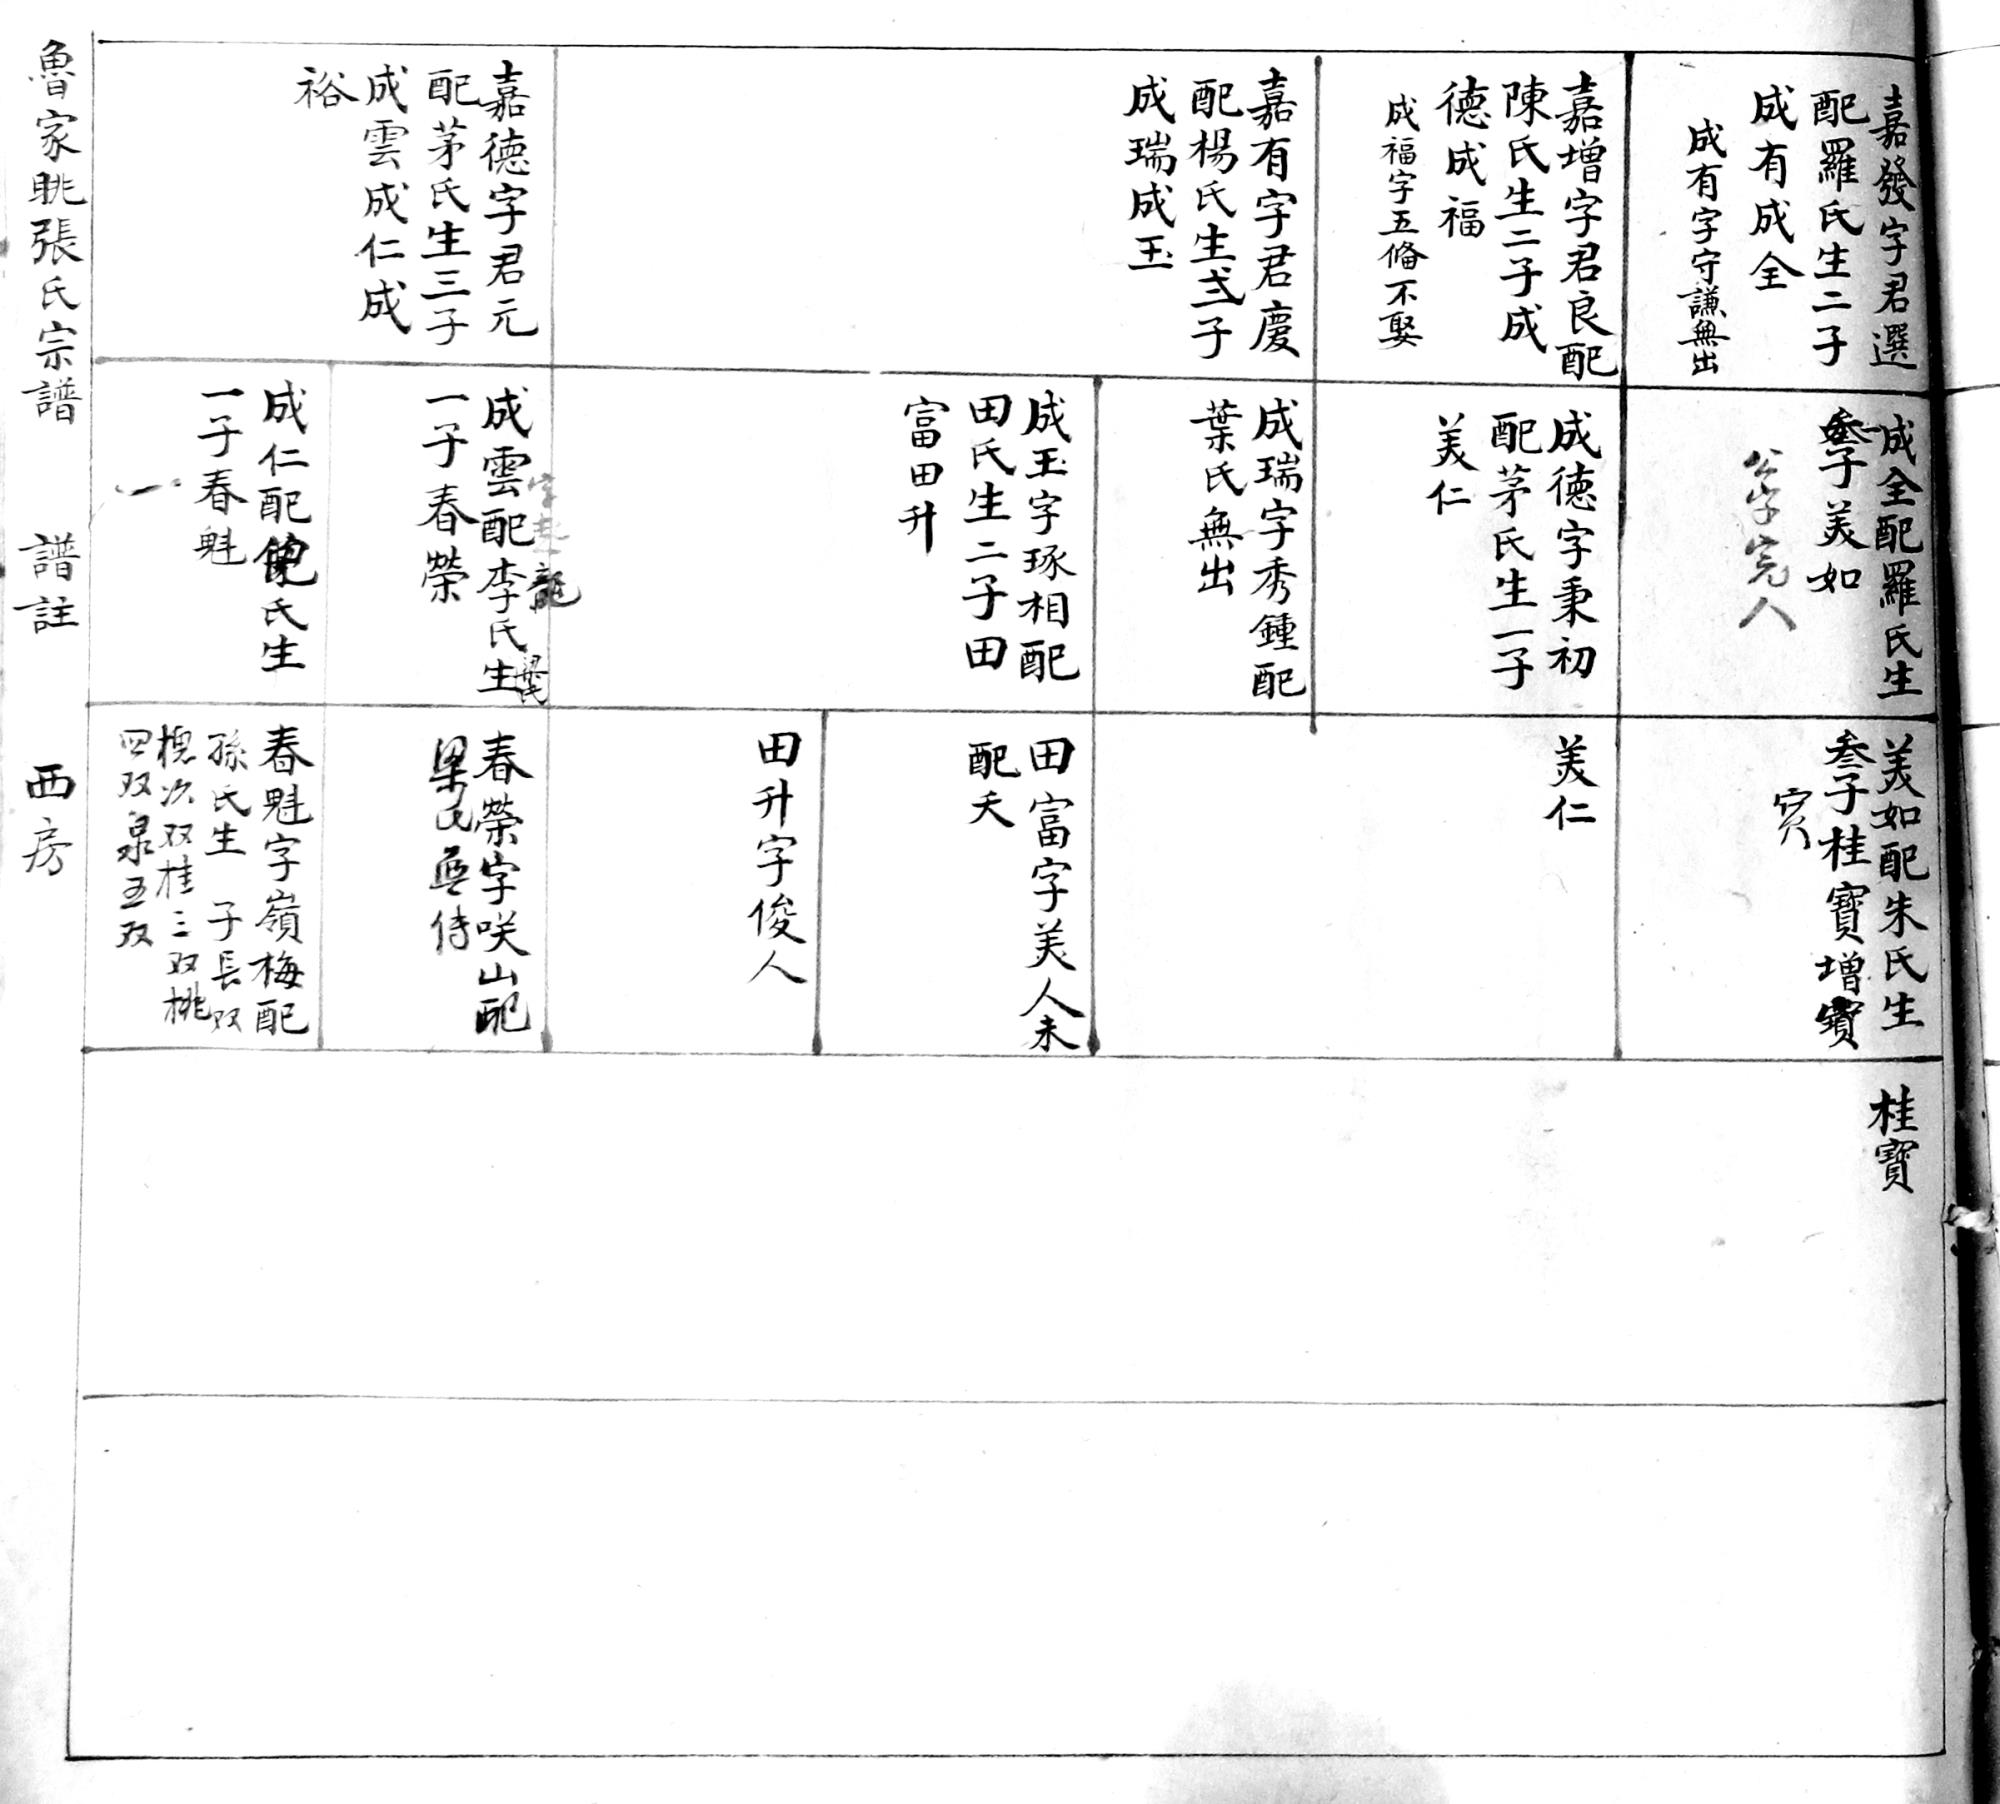 嘉發字君選
配羅氏生二子
成有成全
成有字守謙無出
嘉增字君良配
陳氏生二子成
德成福
成福字五脩不娶
嘉有字君慶
配楊氏生弍子
成瑞成玉
嘉德字君元
配茅氏生三子
成雲成仁成
裕
成全配羅氏生
子美如
字完人
成德字秉初
配茅氏生一子
美仁
成瑞字秀鍾配
葉氏無出
成玉字琢相配
田氏生二子田
富田升
成雲配李氏生
一子春榮
成仁配氏生
一子春魁
美如配朱氏生
叁子桂寶增寶
美仁
田富字美人未
配夭
田升字俊人
春榮字咲山配
梁氏無侍
春魁字嶺梅配
孫氏生 子長双
槐次双桂三双桃
四双泉五双
桂寶
魯家眺張氏宗譜 譜註 西房